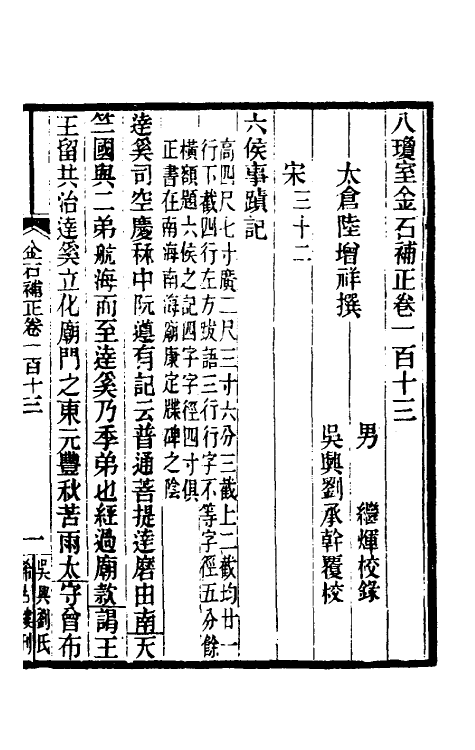 八瓊室金石補正卷一百十三
太倉陸增祥撰
男 繼煇校錄
吳興劉承幹覆校
宋三十二
六侯事蹟記
高四尺七寸廣二尺三寸六分三截上二截均廿一
行下截四行左方跋語三行行字不等字徑五分餘
橫額題六侯之記四字字徑四寸俱
正書在南海南海廟康定牒碑之陰
達奚司空慶秝中阮遵有記云普通菩提達磨由南天
竺國與二弟航海而至達奚乃季弟也經過廟款謁王
王留共治達奚立化廟門之東元豐秋苦雨太守曾布
金石補正卷一百十三
一
吳興劉氏
希古樓刊